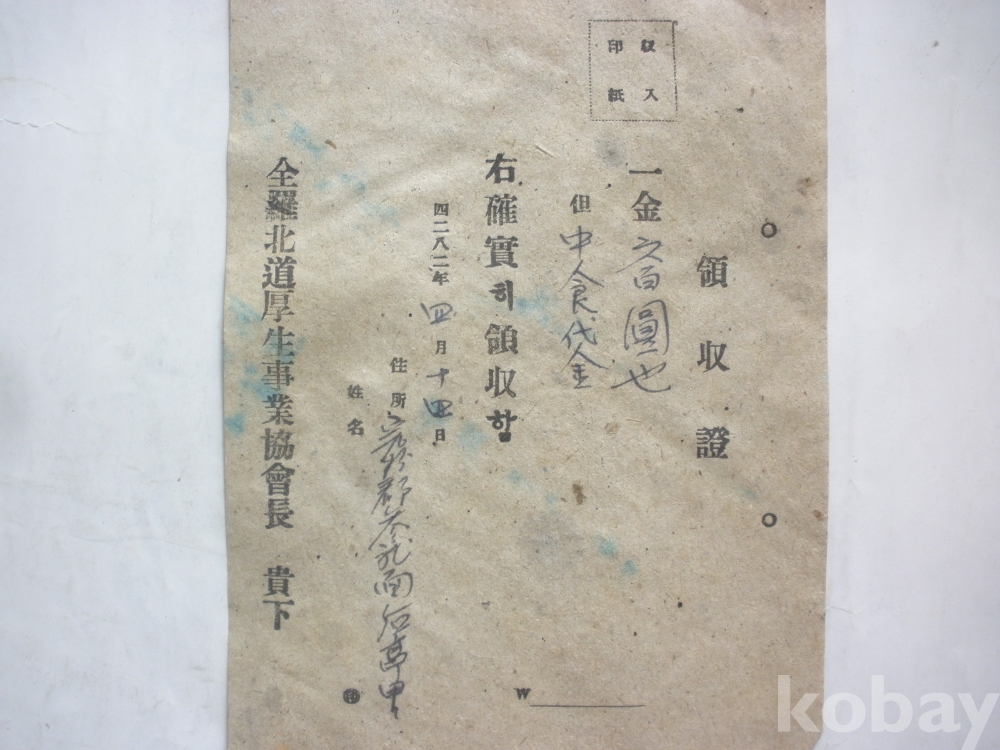 領收證
收入
印紙
一金六百圓也
但中食代金
右確實히領収함
四二八二年四月十四日
住所 郡 面石亭里
姓名
㊞
全羅北道厚生事業協會長 貴下
W
kobay